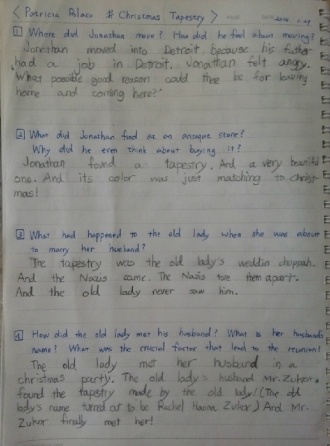 < Patricia Polaco # Christmas Tapestry>
1 Where did Jonathan move? How did he feel about moving?
Jonathan moved into Detroit, because his father
had a job in Detroit. Jonathan felt angry.
'What possible good reason could there be for leaving
home and coming here?'
2 What did Jonathan find at an antique store?
Why did he even think about buying it?
Jonathan found a tapestry. And a very beautiful
one. And its color was just matching to Christ-
mas!
3 What had happened to the old lady when she was about
to marry her husband?
The tapestry was the old lady's weddin chuppah.
And the Nazis came. The Nazis tore them apart.
And the old lady never saw him.
4 How did the old lady met his husband? What is her husband's
name? What was the crucial factor that lead to the reunion?
The old lady met her husband in a
christmas party. The old lady's husband Mr. Zukor.
found the tapestry made by the old lady! (The old
lady's name turned out to be Rachel Hanna Zukor) And Mr.
Zukor finally met her!